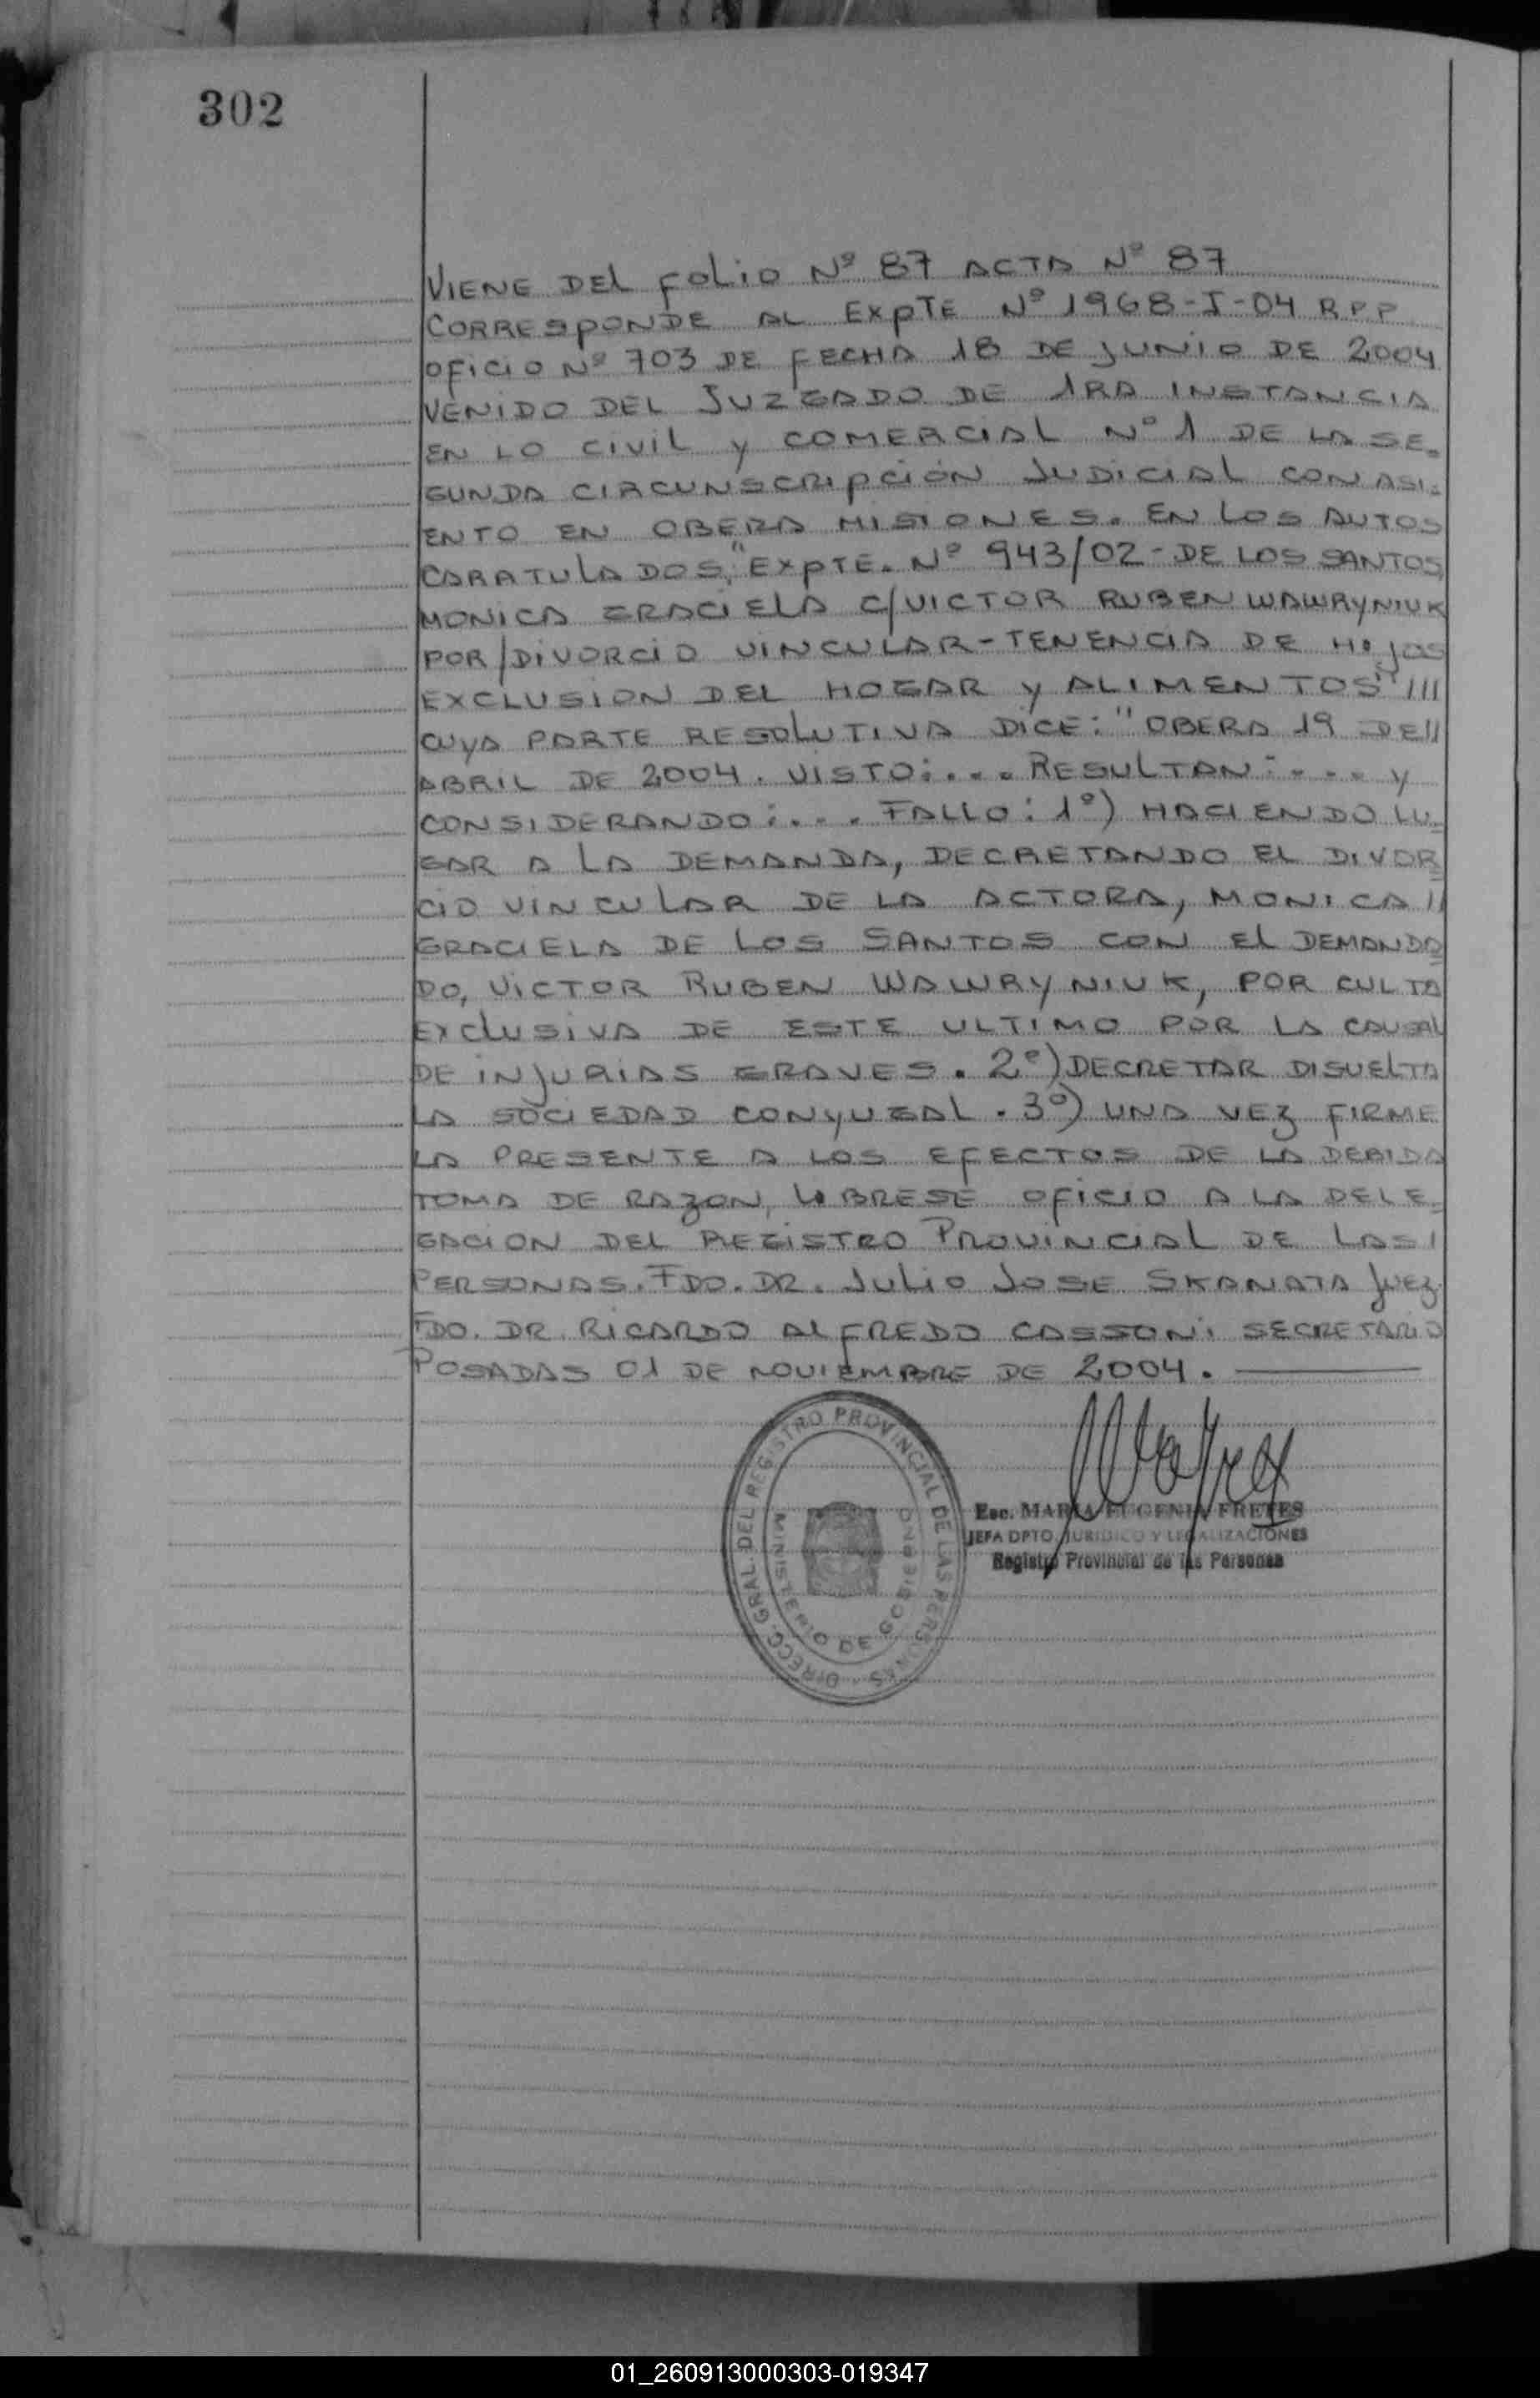 302
VIENE DEL FOLIO Nº 87 ACTA Nº 87
CORRESPONDE AL EXPTE Nº 1968-I-04 R P P
OFICIO Nº 703 DE FECHA 18 DE JUNIO DE 2004
VENIDO DEL JUZGADO DE 1RA INSTANCIA
EN LO CIVIL Y COMERCIAL Nº 1 DE LA SE=
GUNDA CIRCUNSCRIPCIÓN JUDICIAL CON ASI=
ENTO EN OBERA MISIONES. EN LOS AUTOS
CARATULADOS, "EXPTE. Nº 943/02 - DE LOS SANTOS
MONICA GRACIELA C/VICTOR RUBEN WAWRYNIUK
POR/DIVORCIO VINCULAR - TENENCIA DE HIJOS
EXCLUSION DEL HOGAR Y ALIMENTOS" III
CUYA PARTE RESOLUTIVA DICE: "OBERA 19 DE//
ABRIL DE 2004. VISTO:... RESULTAN:.... Y
CONSIDERANDO:... FALLO: 1º) HACIENDO LU=
GAR A LA DEMANDA, DECRETANDO EL DIVOR=
CIO VINCULAR DE LA ACTORA, MONICA //
GRACIELA DE LOS SANTOS CON EL DEMANDA=
DO, VICTOR RUBEN WAWRYNIUK, POR CULTA
EXCLUSIVA DE ESTE ULTIMO POR LA CAUSAL
DE INJURIAS GRAVES. 2º) DECRETAR DISUELTA
LA SOCIEDAD CONYUGAL. 3º) UNA VEZ FIRME
LA PRESENTE A LOS EFECTOS DE LA DEBIDA
TOMA DE RAZON, LIBRESE OFICIO A LA DELE=
GACION DEL REGISTRO PROVINCIAL DE LAS /
PERSONAS. FDO. DR. JULIO JOSE SKANATA JUEZ.
FDO. DR. RICARDO ALFREDO CASSONI SECRETARIO
POSADAS 01 DE NOVIEMBRE DE 2004.
DIRECC. GRAL. DEL REGISTRO PROVINCIAL DE LAS PERSONAS
MINISTERIO DE GOBIERNO
Esc. MARIA EUGENIA FRETES
JEFA DPTO. JURIDICO Y LEGALIZACIONES
Registro Provincial de las Personas
01_260913000303-019347